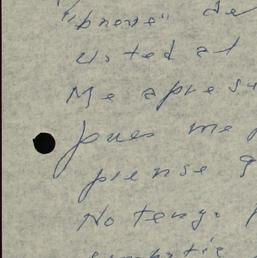 "breve" de
usted al
Me apresu
pues me p
piense q
No tengo p